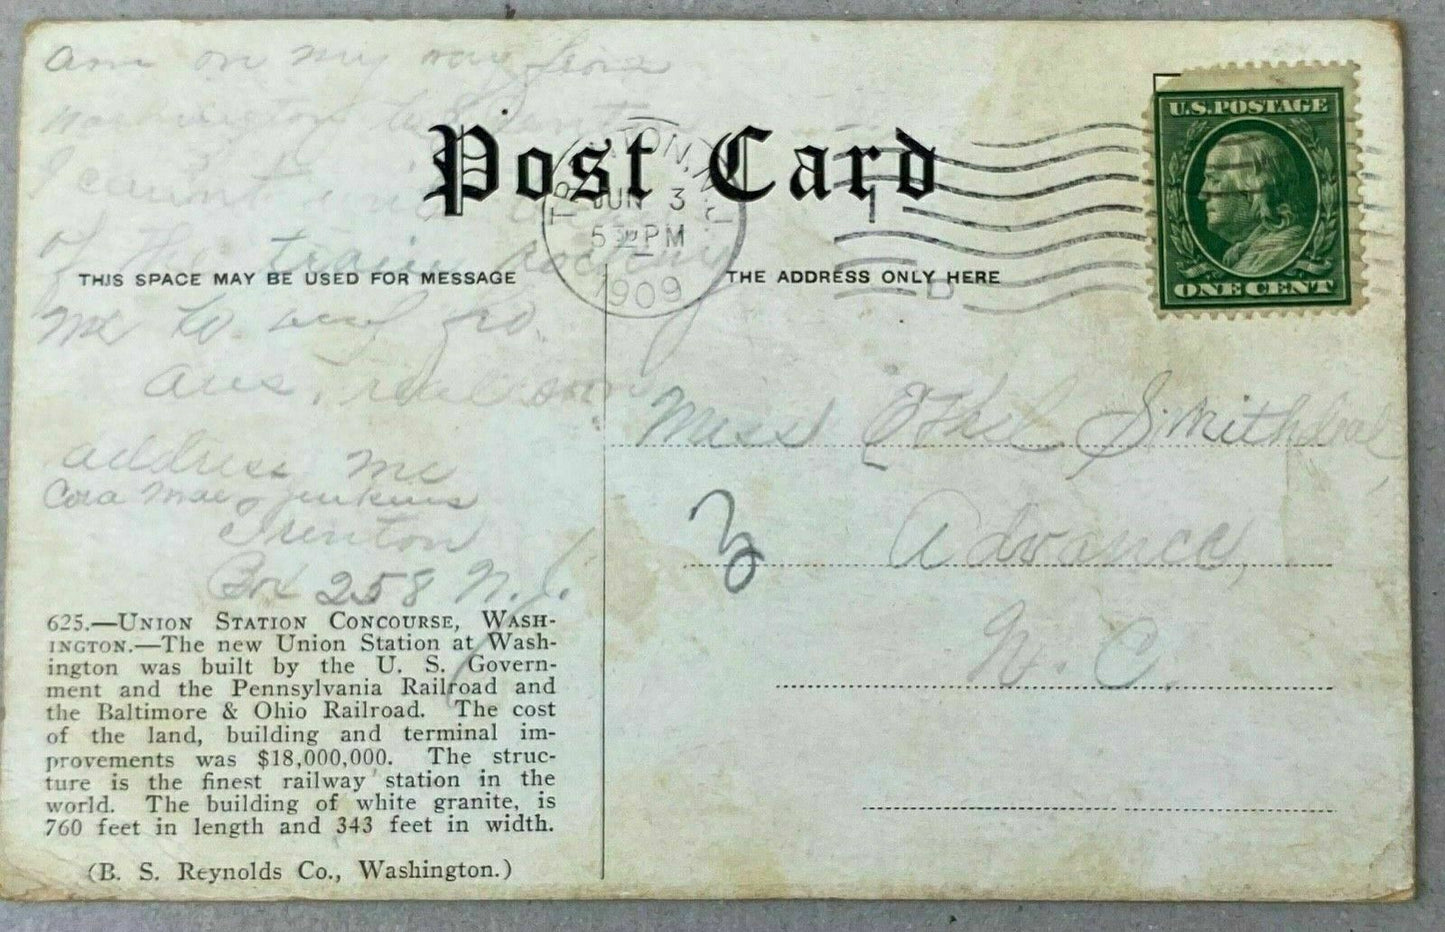 am on my way from
Washington to Trenton
I can't write
of the train
me to. 
ans. real soon
address me
Cora Mae Jenkins
Trenton
Box 258 N. J.
Post Card
THIS SPACE MAY BE USED FOR MESSAGE
THE ADDRESS ONLY HERE
TON, N.J.
JUN 3
5 PM
1909
U.S. POSTAGE
ONE CENT
Miss Ethel Smithdeal,
Advance,
N. C.
625.—UNION STATION CONCOURSE, WASH-
INGTON.—The new Union Station at Wash-
ington was built by the U. S. Govern-
ment and the Pennsylvania Railroad and
the Baltimore & Ohio Railroad. The cost
of the land, building and terminal im-
provements was $18,000,000. The struc-
ture is the finest railway station in the
world. The building of white granite, is
760 feet in length and 343 feet in width.
(B. S. Reynolds Co., Washington.)